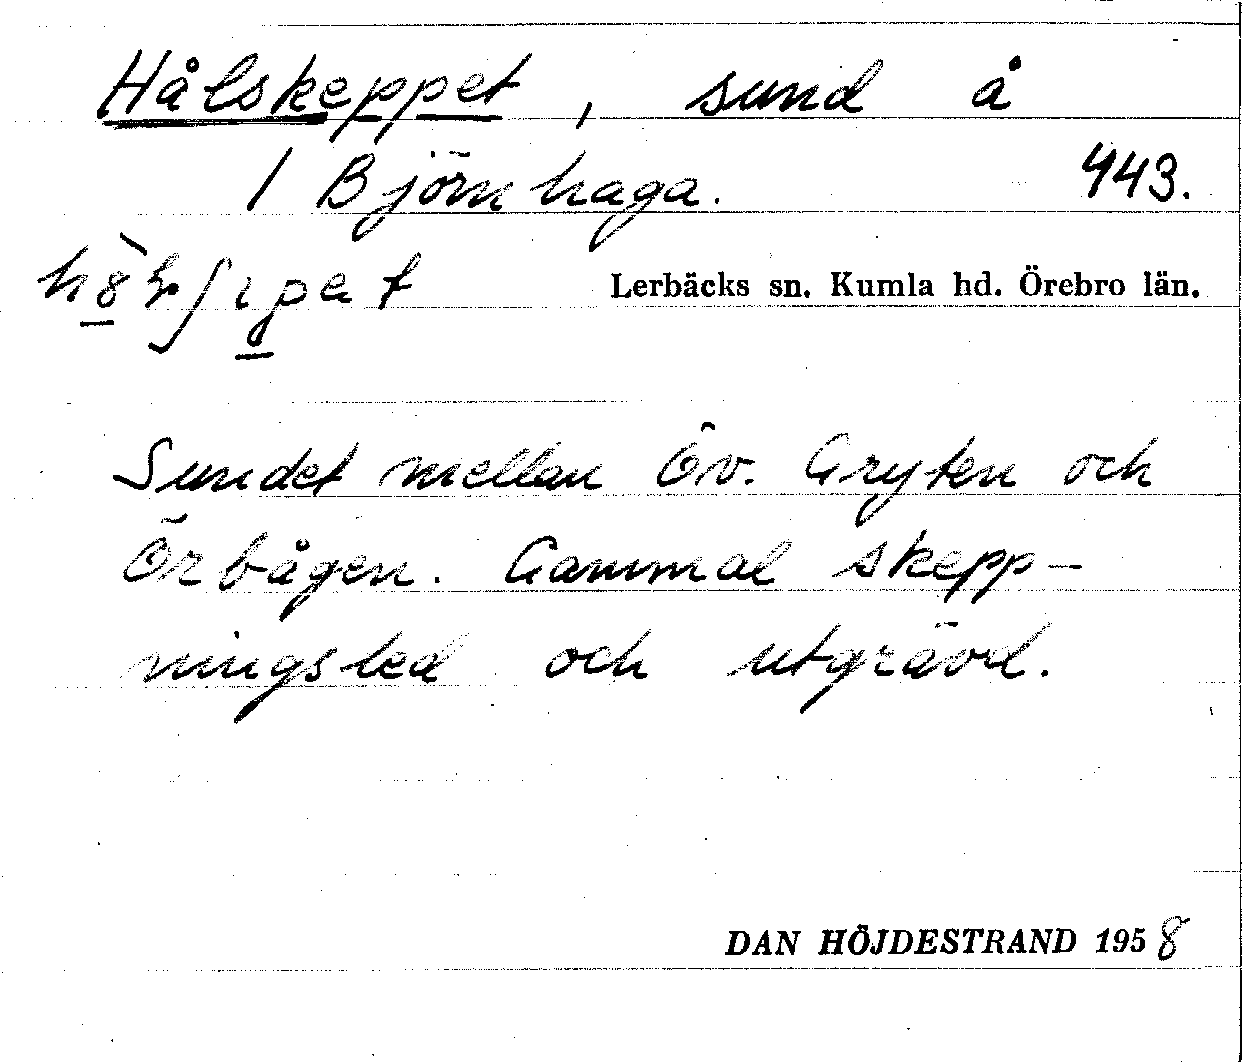 Hålskeppet, sund å
1 Björnhaga. 443.
Lerbäcks sn. Kumla hd. Örebro län.
Sundet mellan Öv. Gryten och
Örbågen. Gammal skepp-
ningsled och utgrävd.
DAN HÖJDESTRAND 1958